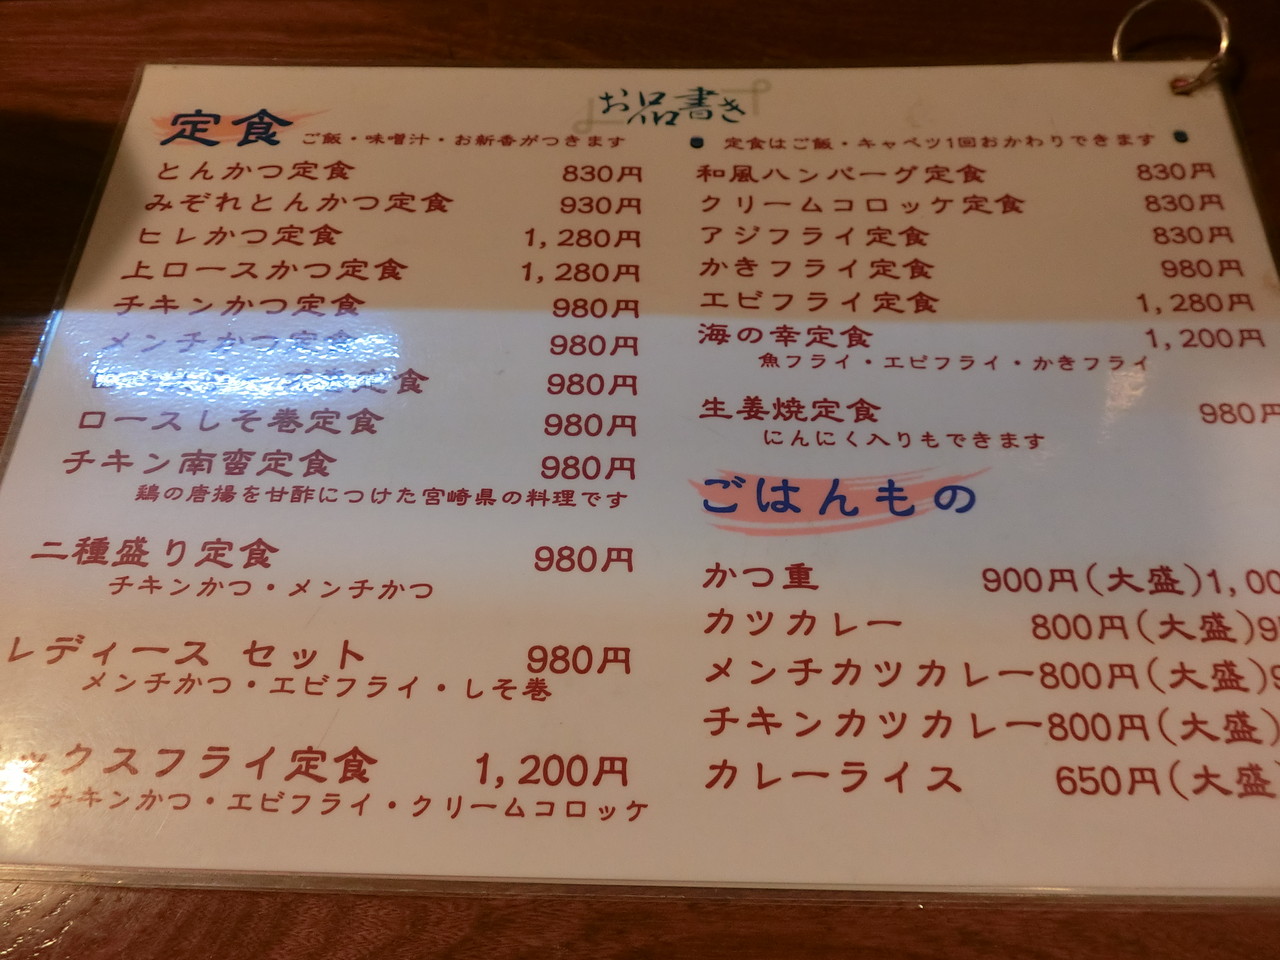 お品書き
定食 ご飯・味噌汁・お新香がつきます
とんかつ定食 830円
みぞれとんかつ定食 930円
ヒレかつ定食 1,280円
上ロースかつ定食 1,280円
チキンかつ定食 980円
メンチかつ定食 980円
定食 980円
ロースしそ巻定食 980円
チキン南蛮定食 980円
鶏の唐揚を甘酢につけた宮崎県の料理です
二種盛り定食 980円
チキンかつ・メンチかつ
レディース セット 980円
メンチかつ・エビフライ・しそ巻
ックスフライ定食 1,200円
チキンかつ・エビフライ・クリームコロッケ
定食はご飯・キャベツ1回おかわりできます
和風ハンバーグ定食 830円
クリームコロッケ定食 830円
アジフライ定食 830円
かきフライ定食 980円
エビフライ定食 1,280円
海の幸定食 1,200円
魚フライ・エビフライ・かきフライ
生姜焼定食 980円
にんにく入りもできます
ごはんもの
かつ重 900円(大盛)1,00
カツカレー 800円(大盛)9
メンチカツカレー800円(大盛)9
チキンカツカレー800円(大盛)
カレーライス 650円(大盛